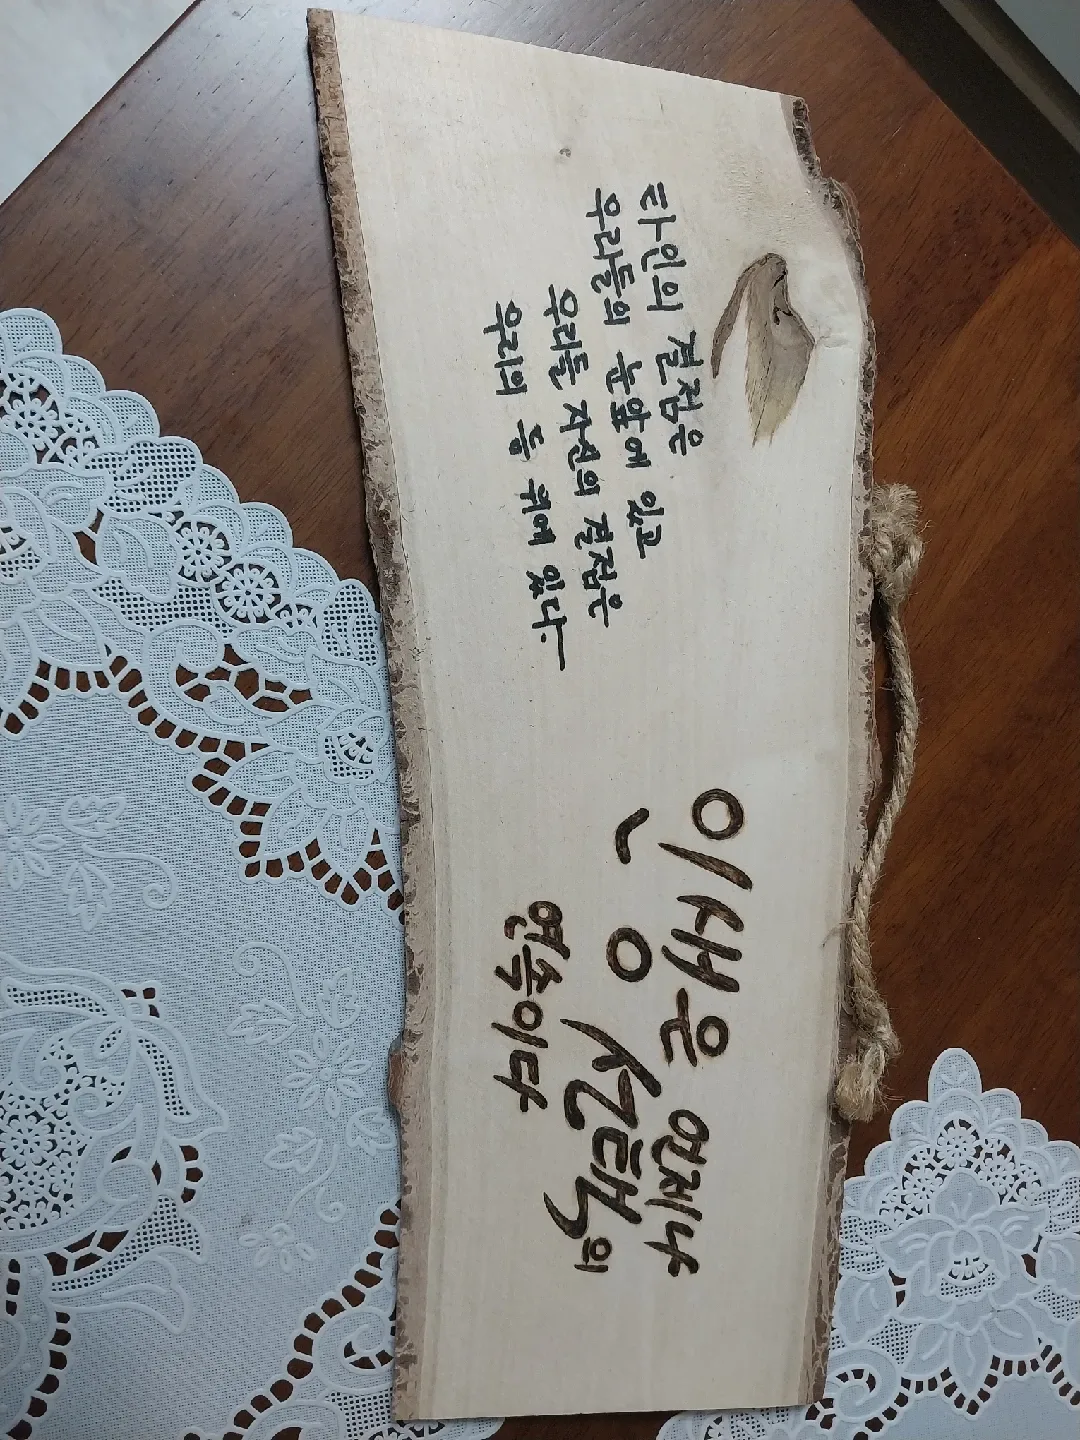 타인의 결점은
우리들의 눈앞에 있고
우리들 자신의 결점은
우리의 등 뒤에 있다.
인생은 언제나
선택의
연속이다